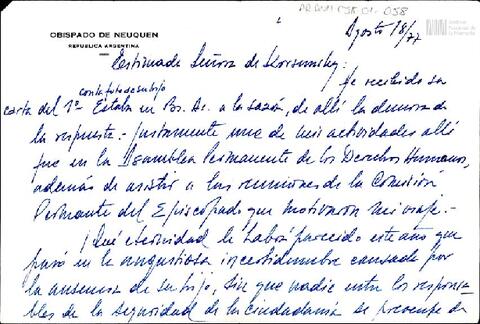 OBISPADO DE NEUQUEN
REPUBLICA ARGENTINA
Agosto 18/77
Estimada Señora de
He recibido su
con la foto de su hijo
carta del 1º Estaba en Bs. As. a la sazón, de allí la demora de
la respuesta.- Justamente una de mis actividades allí
fue en la Asamblea Permanente de los Derechos Humanos,
además de asistir a las reuniones de la Comisión
Permanente del Episcopado que motivaron mi viaje.-
¡Qué eternidad le habrá parecido este año que
pasó en la angustiosa incertidumbre causada por
la ausencia de su hijo, sin que nadie entre los responsa-
bles de la seguridad de la ciudadanía se preocupe de